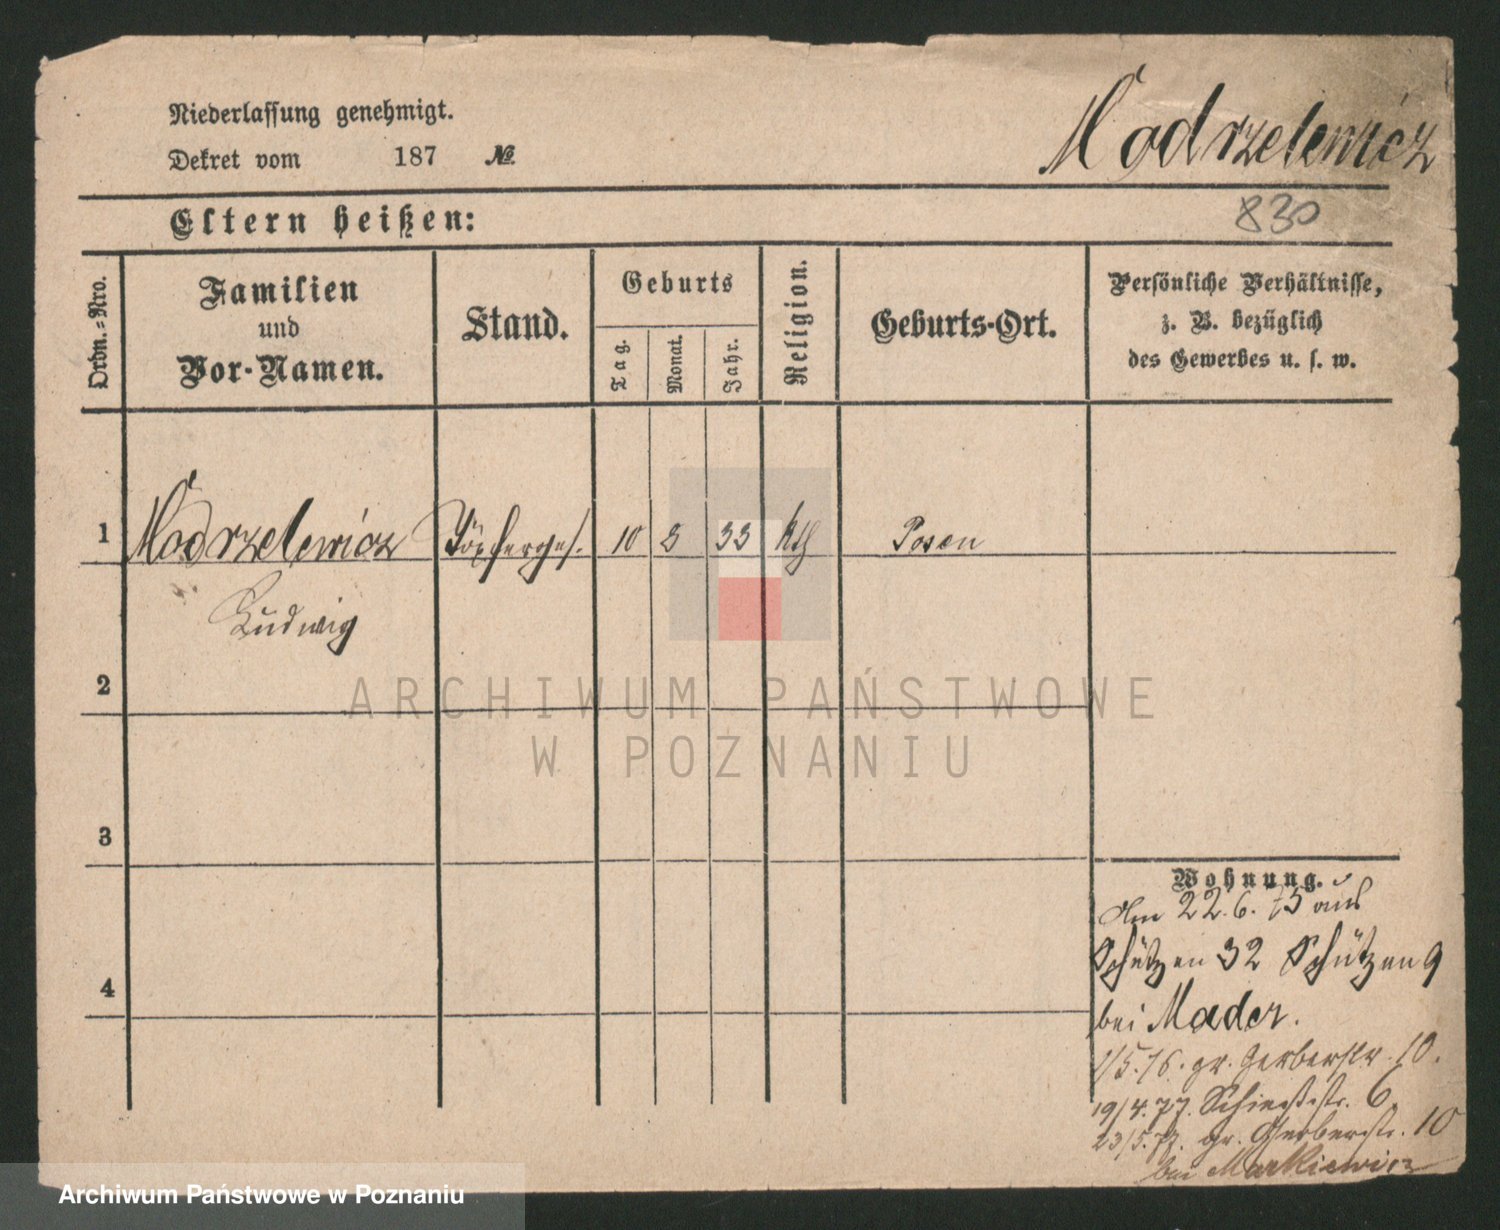 Niederlassung genehmigt.
Dekret vom 187 №
Modrzelewicz
Eltern heißen:
830
Ordn.=Nro.
Familien
und
Vor-Namen.
Stand.
Geburts
Tag.
Monat.
Jahr.
Religion.
Geburts-Ort.
Persönliche Verhältnisse,
z. B. bezüglich
des Gewerbes u. s. w.
1 Modrzelewicz Töpferges. 10 8 33 kth Posen
Ludwig
2
ARCHIWUM PAŃSTWOWE
W POZNANIU
3
4
Wohnung.
Am 22.6.75 aus
Schützen 32 Schützen 9
bei Mader.
1/5.76. gr. Gerberstr. 10.
19/4.77. Schießstr. 6.
23/5.77. gr. Gerberstr. 10
bei Markiewicz
Archiwum Państwowe w Poznaniu